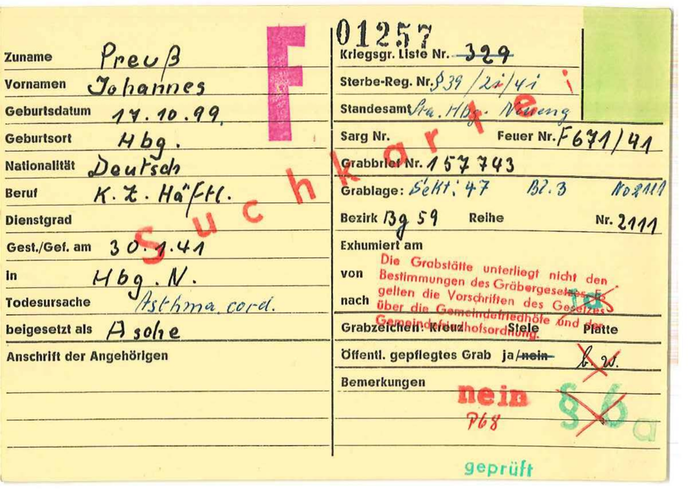 F
01257
Suchkartei
Zuname Preuß
Vornamen Johannes
Geburtsdatum 17.10.99.
Geburtsort Hbg.
Nationalität Deutsch
Beruf K.Z. Häftl.
Dienstgrad
Gest./Gef. am 30.1.41
in Hbg. N.
Todesursache Asthma cord.
beigesetzt als Asche
Anschrift der Angehörigen
Kriegsgr. Liste Nr. 329
Sterbe-Reg. Nr. §39/2i/4i
Standesamt Sta. Hbg. Neueng
Sarg Nr. Feuer Nr. F671/41
Grabbrief Nr. 157743
Grablage: Sekt: 47 Bl. 3 No 2111
Bezirk Bg 59 Reihe Nr. 2111
Exhumiert am
von
nach ja
Die Grabstätte unterliegt nicht den
Bestimmungen des Gräbergesetzes. Es
gelten die Vorschriften des Gesetzes
über die Gemeindefriedhöfe und der
Gemeindefriedhofsordnung.
Grabzeichen: Kreuz Stele Platte
Öffentl. gepflegtes Grab ja/nein b.w.
Bemerkungen
nein § 6 a
P68
geprüft